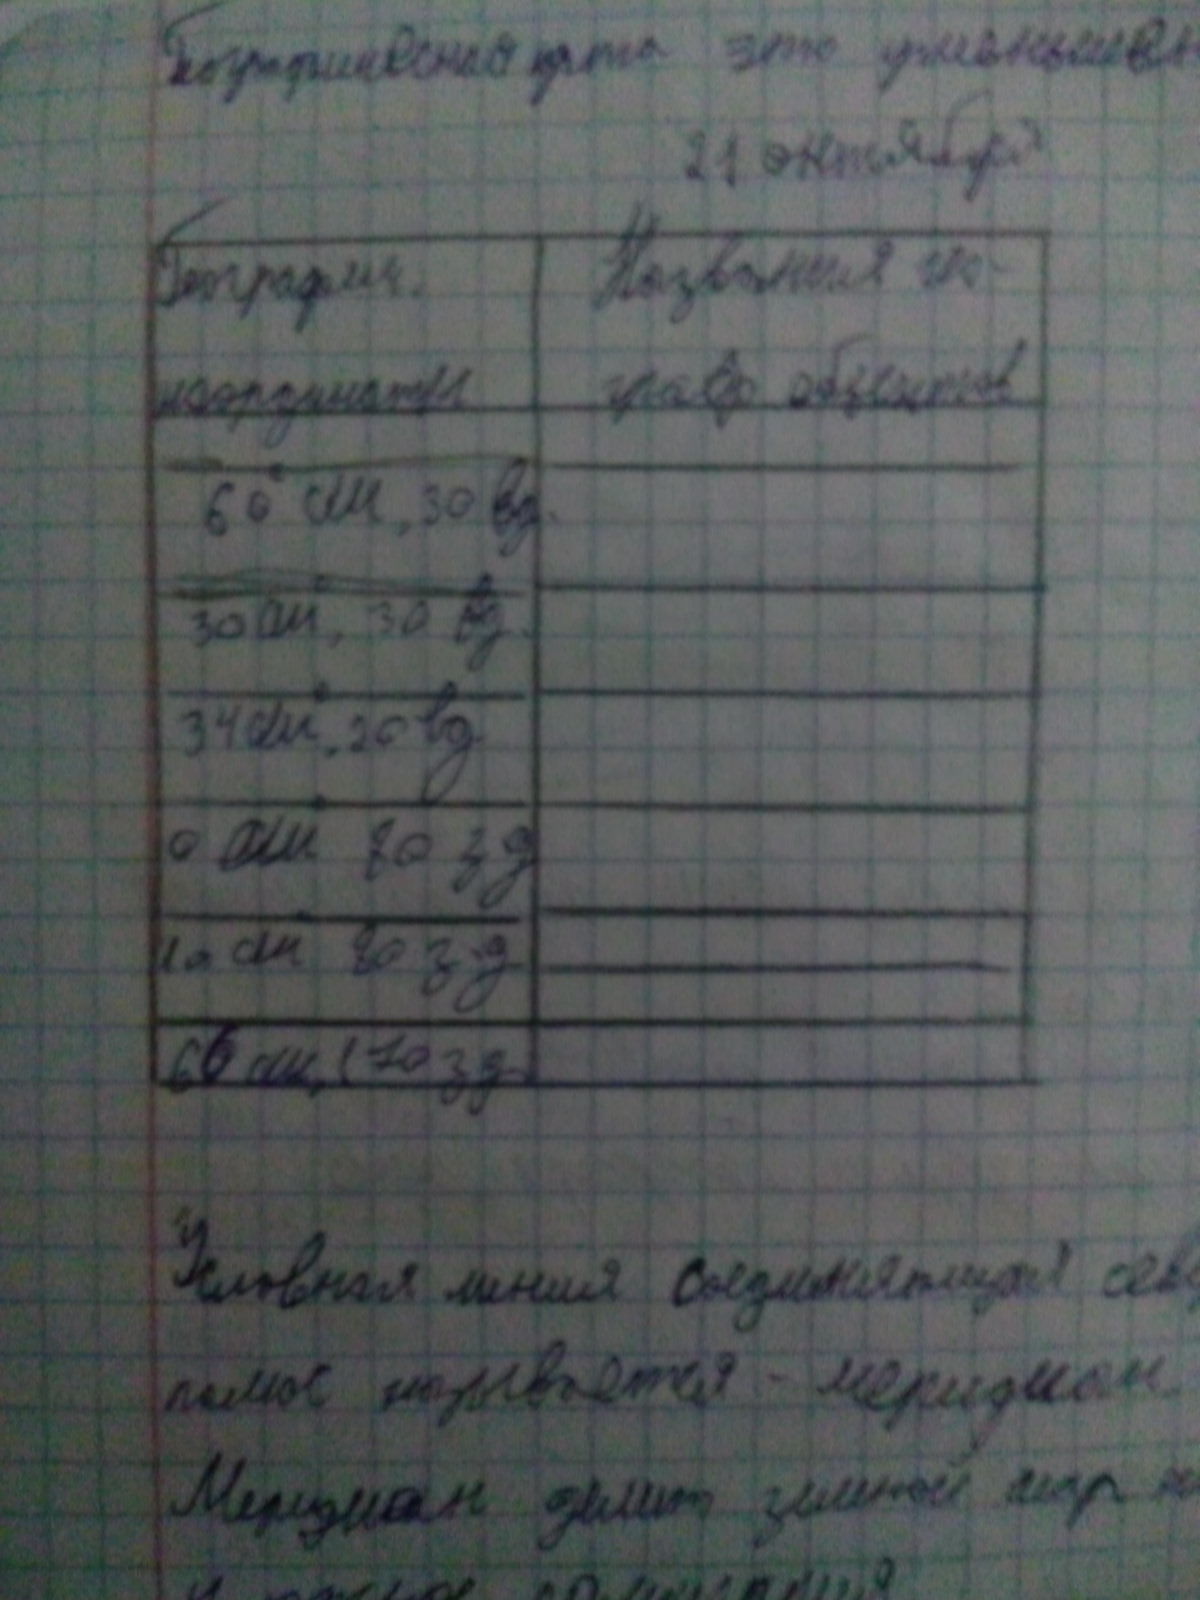 Географическая карта это уменьшен
21 октября
Географич. Названия гео-
координаты граф объектов
60° сш, 30 вд.
30 сш, 30 вд.
34 сш, 20 вд
0 сш 80 з д
10 сш 80 з.д
66 сш, 170 зд.
Условная линия соединяющая сев
полюс называется - меридиан.
Меридиан делит земной шар на
и